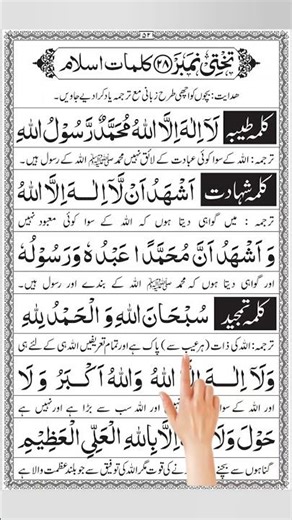 ۵۲
تختی نمبر ۲۸ کلمات اسلام
ھدایت: بچوں کو اچھی طرح زبانی مع ترجمہ یاد کرا دیے جاویں۔
کلمہ طیبہ لَآ اِلٰهَ اِلَّا اللهُ مُحَمَّدٌ رَّسُوْلُ اللهِ
ترجمہ: اللہ کے سوا کوئی عبادت کے لائق نہیں محمد ﷺ اللہ کے رسول ہیں۔
کلمہ شہادت اَشْهَدُ اَنْ لَّآ اِلٰهَ اِلَّا اللهُ
ترجمہ: میں گواہی دیتا ہوں کہ اللہ کے سوا کوئی معبود نہیں
وَ اَشْهَدُ اَنَّ مُحَمَّدًا عَبْدُهٗ وَ رَسُوْلُهٗ
اور گواہی دیتا ہوں کہ محمد ﷺ اللہ کے بندے اور رسول ہیں۔
کلمہ تمجید سُبْحَانَ اللهِ وَ الْحَمْدُ لِلّٰهِ
ترجمہ: اللہ کی ذات (ہر عیب سے) پاک ہے اور تمام تعریفیں اللہ ہی کے لئے ہی
وَلَآ اِلٰهَ اللهُ وَاللهُ اَكْبَرُ وَ لَا
اور اللہ کے سوا اور اللہ سب سے بڑا ہے اور نہیں ہے
حَوْلَ وَلَا اِلَّا بِاللهِ الْعَلِيِّ الْعَظِيْمِ
گناہوں سے بچنے کرنے کی قوت مگر اللہ کی توفیق سے جو بلند عظمت والا ہے